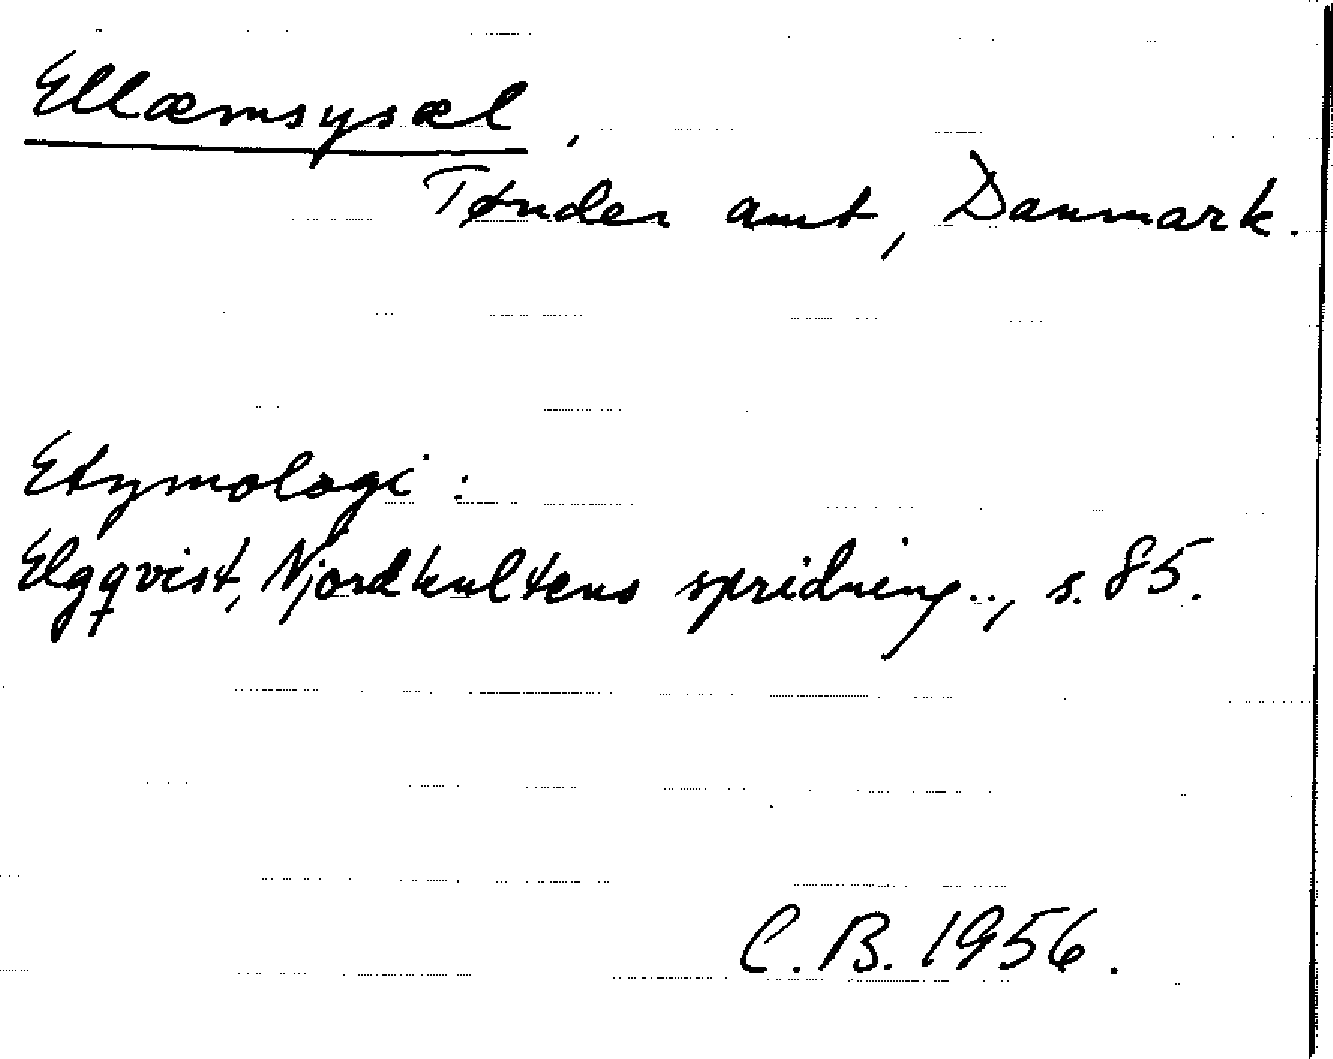 Ellæmsysæl,
Tønder amt, Danmark.
Etymologi:
Elgqvist, Njordkultens spridning.., s. 85.
C.B. 1956.